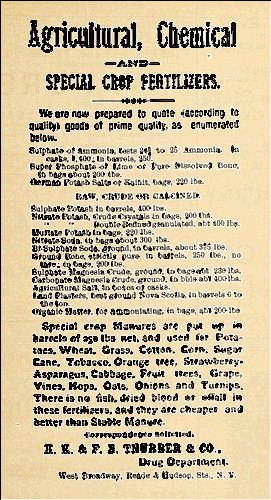 Agricultural, Chemical
—AND—
SPECIAL CROP FERTILIZERS.
We are now prepared to quote (according to
quality) goods of prime quality, as enumerated
below.
Sulphate of Ammonia, tests 24½ to 25 Ammonia. In
casks, 1,400; in barrels, 250.
Super Phosphate of Lime or Pure Dissolved Bone,
in bags about 200 lbs.
German Potash Salts or Kainit, bags, 220 lbs.
RAW, CRUDE OR CALCINED.
Sulphate Potash in barrels, 400 lbs.
Nitrate Potash, Crude Crystals in bags, 200 lbs.
" Double Refined granulated, abt 400 lbs.
Muriate Potash in bags, 220 lbs.
Nitrate Soda, in bags about 300 lbs.
Bi-Sulphate Soda, ground, in barrels, about 375 lbs.
Ground Bone, strictly pure in barrels, 250 lbs., no
tare; in bags, 200 lbs.
Sulphate Magnesia Crude, ground, in bags abt 230 lbs.
Carbonate Magnesia Crude, ground, in bbls abt 400 lbs.
Agricultural Salt, in tons of casks.
Land Plasters, best ground Nova Scotia, in barrels 6 to
the ton.
Organic Matter, for Ammoniating, in bags, abt 200 lbs
Special crop Manures are put up in
barrels of 250 lbs net, and used for Pota-
toes, Wheat, Grass, Cotton, Corn, Sugar
Cane, Tobacco, Orange tree, Strawberry-
Asparagus, Cabbage, Fruit trees, Grape,
Vines, Hops, Oats, Onions and Turnips.
There is no fish, dried blood or snail in
these fertilizers, and they are cheaper and
better than Stable Manure.
Correspondence solicited.
H. K. & F. B. THURBER & CO.,
Drug Department.
West Broadway, Reade & Hudson, Sts., N. Y.